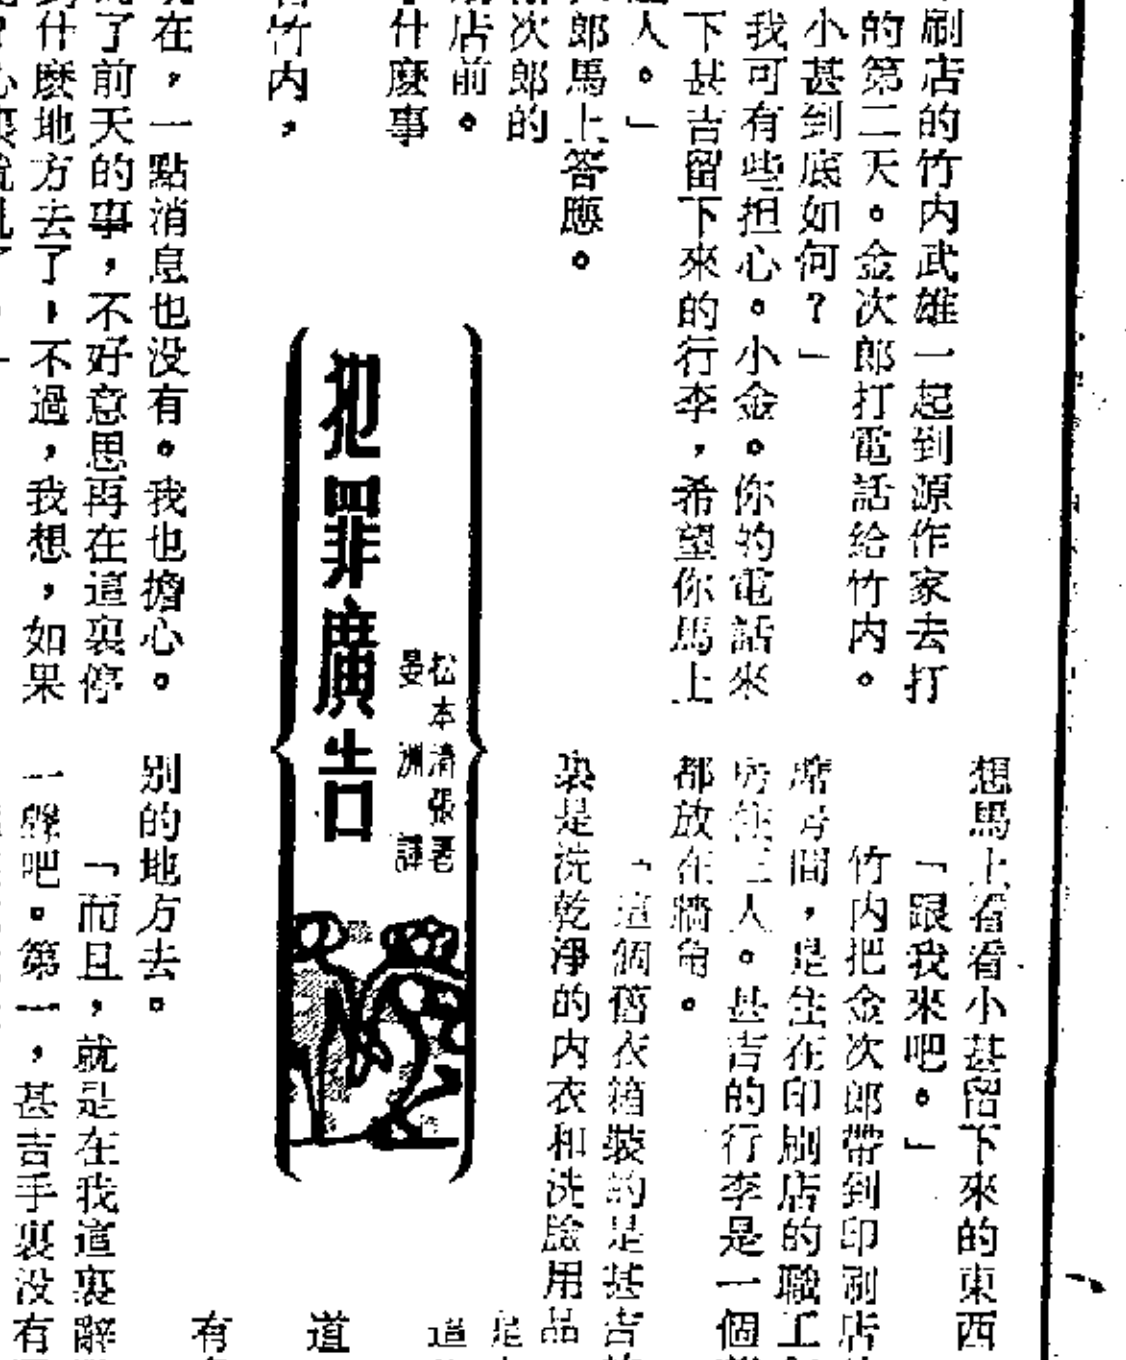 刷店的竹内武雄一起到源作家去打
的第二天。金次郎打電話給竹内。
小甚到底如何？」
我可有些担心。小金。你的電話來
下甚吉留下來的行李，希望你馬上
人。」
郎馬上答應。
次郎的
店前。
什麼事
竹内，
犯罪廣告
松本清張著
晏洲譯
在，一點消息也没有。我也擔心。
了前天的事，不好意思再在這裏停
什麽地方去了，不過，我想，如果
想馬上看看小甚留下來的東西
「跟我來吧。」
竹内把金次郎帶到印刷店
間，是住在印刷店的職工
人。甚吉的行李是一個
都放在牆角。
「這個舊衣箱裝的是甚吉
是洗乾淨的内衣和洗臉用品
是
道
道
有
别的地方去。
「而且，就是在我這裏辭
一聲吧。第一，甚吉手裏没有